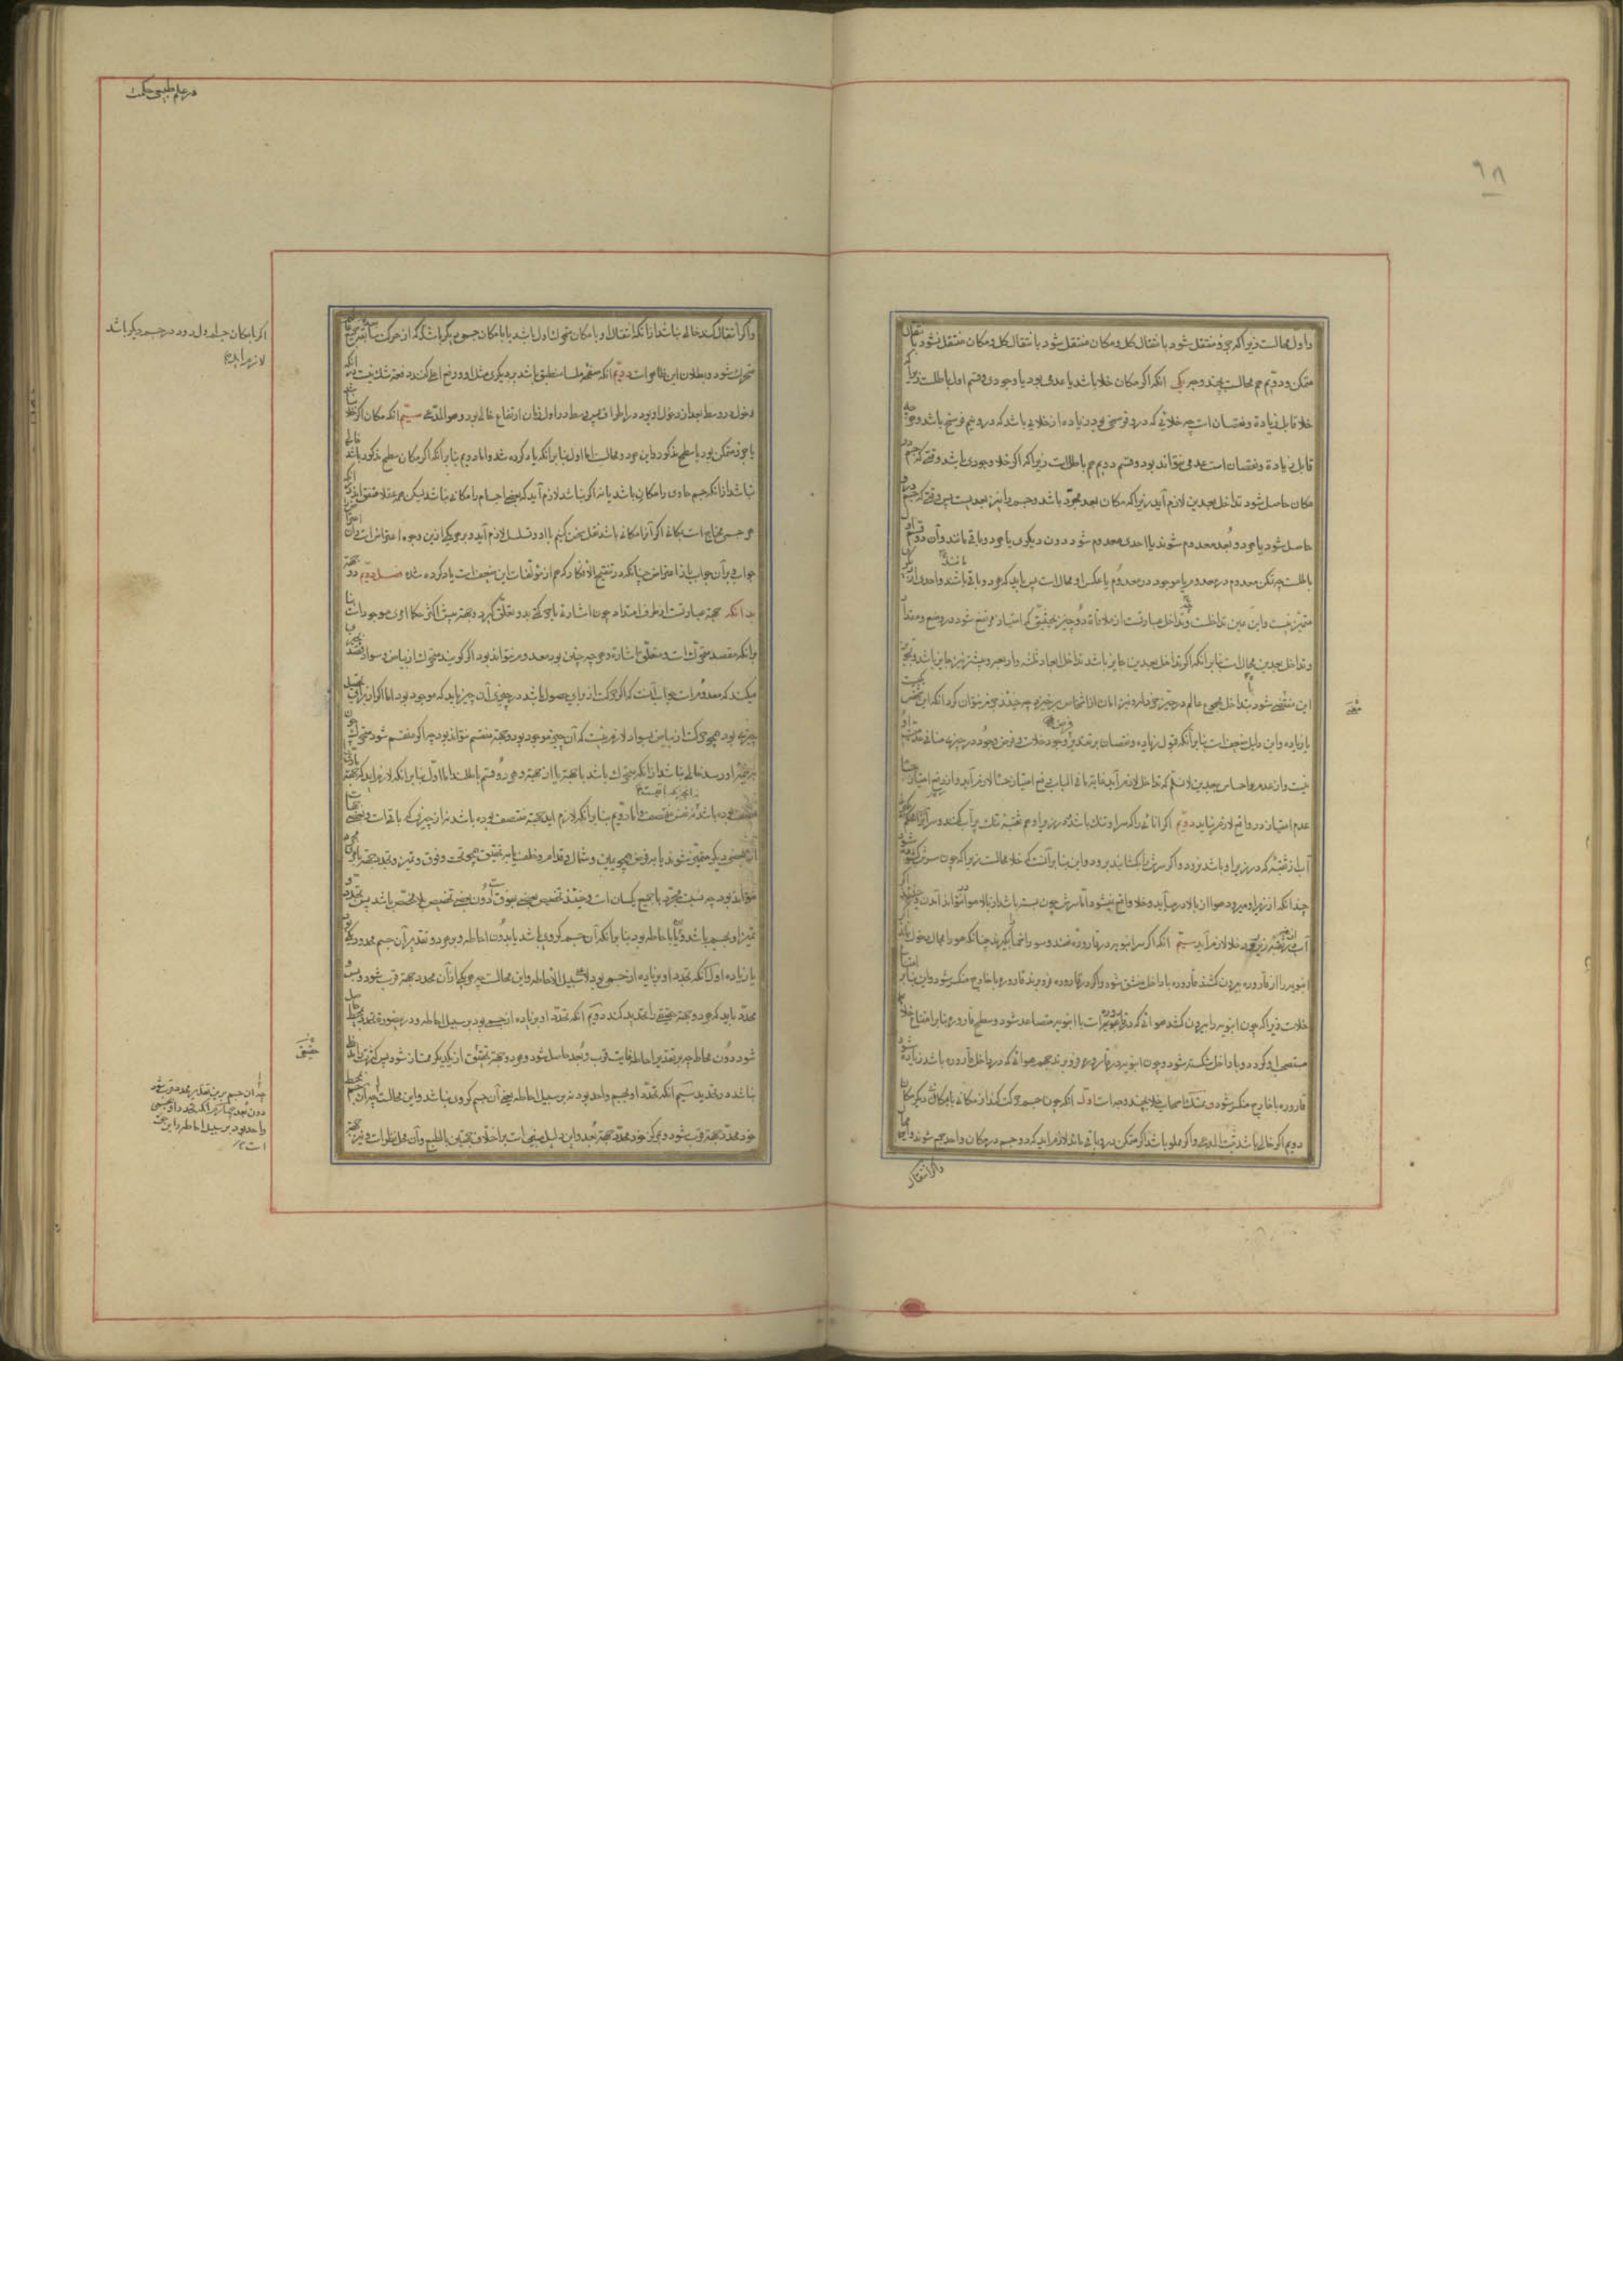 ٦٨
و اول محالست زیرا که جزو منتقل شود بانتقال کل و مکان منتقل شود بانتقال کل و مکان منتقل نشود بانتقال
متمکن و دویم هم محالست بچند وجه یکی انکه اکر مکان خلا باشد یا عدمی بود یا وجودی و قسم اول باطلست زیرا که
خلا قابل زیادة و نقصان است چه خلائی که در دو فرسخی بود زیاده از خلائی باشد که در دو نیم فرسخ باشد و هرچه
قابل زیادة و نقصان است عدمی نتواند بود و قسم دویم هم باطل است زیرا که اکر خلا وجودی باشد وقتی که جسم در
مکان حاصل شود تداخل بعدین لازم آید زیرا که مکان بعد مجرد باشد و جسم را نیز بعدیست پس وقتی که جسم درو
حاصل شود یا هر دو بعد معدوم شوند یا احدی معدوم شود دون دیکری یا هر دو باقی مانند و آن دو قسم اول
باطلست چه تمکن معدوم در معدوم یا موجود در معدوم یا عکس او محال است پس باید که هر دو باقی باشند و احدی از دیکری
متمیز نیست و این عین تداخلست و تداخل عبارتست از ملاقاة دو چیز بحیثیتی که امتیاز مرتفع شود در وضع و مقدار
و تداخل بعدین محال است بنابر انکه اکر تداخل بعدین جایز باشد تداخل ابعاد ثلثه و اربعه و بیشتر نیز جایز باشد و تجویز
این مفضی شود بتداخل مجموع عالم در حیز خردله و نیز امان از اشخاص برخیزد چه حینئذ جزم نتوان کرد انکه این شخص یکیست
یا زیاده و این دلیل ضعیف است بنابر انکه قبول زیاده و نقصان بر تقدیر وجود خلاست و فرض وجود در چیزی منافی عدم او
نیست و از عدم احساس ببعدین لا نسلم که تداخل لازم آید غایة ما فی الباب رفع امتیاز حسا لازم آید و از رفع امتیاز حسا
عدم امتیاز در واقع لازم نیاید دویم اکر انائی را که سر او تنک باشد و در زیر او هم ثقبه تنک پر آب کنند و سر او را محکم کنند
آب از ثقبه که در زیر او باشد نرود و اکر سرش را بکشایند برود و این بنابر آنست که خلا محالست زیرا که چون سرش کشوده شود
چندانکه از زیر او میرود هوا از بالا در میآید و خلا واقع نمیشود اما سرش چون بسته باشد از بالا هوا نتواند آمدن و حینئذ اکر
آب از ثقبه زیرین برود خلا لازم آید سیم انکه اکر سر انبوبه در قاروره نهند و سوراخها بکیرند چنانکه هوا را مجال دخول نماند اکر
انبوبه را از قاروره بیرون کشند قاروره با داخل منشق شود و اکر در قاروره فرو برند قاروره با خارج منکسر شود و این بنابر امتناع
خلاست زیرا که چون انبوبه را بیرون کشند هوائی که در قاروره است با انبوبه متصاعد شود و سطح قاروره بنابر امتناع خلا
مستصحب او کردد و با داخل شکسته شود و چون انبوبه در قاروره فرو برند حجم هوائی که در داخل قاروره باشد زیاده شود
قاروره با خارج منکسر شود و متمسک اصحاب خلا بچند وجه است اول انکه چون جسم حرکت کند از مکانی بامکانی دیکر مکان
دویم اکر خالی باشد ثبت المدعی و اکر مملو باشد اکر متمکن درو باقی ماند لازم آید که دو جسم در مکان واحد جمع شوند و این محال
و اکر انتقال
در علم طبیعی حکمت
و اکر انتقال کند خالی نباشد از انکه انتقال او با مکان متحرک اول باشد یا با مکان جسمی دیکر باشد که از حرکت
متحرک شود و بطلان این ظاهر است دویم انکه صفحه ملسا منطبق باشد بر دیکری مثل او و رفع اعلی کنند دفعة شک نیست در انکه
دخول در وسط بعد از دخول او بود در اطراف پس وسط در اول زمان ارتفاع خالی بود و هو المدعی سیم انکه مکان اکر خلا نباشد
یا جزو متمکن بود یا سطح مذکور و این هر دو محالست اما اول بنابر انکه یاد کرده شد و اما دویم بنابر انکه اکر مکان سطح مذکور باشد خالی
نباشد از انکه جسم حاوی را مکان باشد یا نه اکر نباشد لازم آید که بعضی اجسام را مکانی نباشد
هر جسمی محتاج است بمکانی اکر آنرا مکانی باشد نقل سخن کنیم با او و تسلسل لازم آید و بر هر یکی ازین وجوه اعتراض است و از آن
جوابی و بر آن جواب باز اعتراض چنانکه در تنقیح الافکار که هم از مؤلفات این ضعیف است یاد کرده شد فصل دویم در جهة
بدانکه جهة عبارتست از طرف امتداد چون اشارة یا حرکتی بدو تعلق کیرد و جهة پیش اکثر حکما امری موجود است بنا
بر انکه مقصد متحرک است و متعلق باشارة و هرچه چنین بود معدوم نتواند بود اکر کویند متحرک از بیاض بسواد قصد
میکند که معدوم است جواب آنست که اکر حرکت از برای حصول باشد در چیزی آن چیز باید که موجود بود اما اکر از برای تحصیل
چیزی بود همچو حرکت از بیاض بسواد لازم نیست که آن چیز موجود بود و جهة منقسم نتواند بود چه اکر منقسم شود متحرک چون
بجزء او رسد خالی نباشد از انکه متحرک باشد با جهة یا از جهة و هر دو قسم باطلند اما اول بنابر انکه لازم آید که جهة
منتصف بوده باشد نه نفس منتصف و اما دویم بنابر انکه لازم آید جهة منتصف بوده باشد نه از چیزی که باقیست و جهات
از بعضی دیکر متمیز شوند یا بفرض همچو یمین و شمال و قدام و خلف یا بتحقیق همچو تحت و فوق و تمیز و تحدید جهة یا بمجرد
نتواند بود چه نسبت مجرد با جمیع یکسان است و حینئذ تخصیص بعضی بفوقیت دون بعضی تخصیص بلا مخصص باشد پس تحدد و
تمیز او بجسم باشد و یا باحاطه بود بنابر انکه آن جسم کروی باشد یا بدون احاطه و بر هر دو تقدیر آن جسم محدد یکی بود
یا زیاده اول انکه تحدد او بزیاده از جسمی بود لا علی سبیل الاحاطه و این محالست چه هر یکی از آن محدد جهة قرب شود و بس و
محدد باید که هر دو جهة حقیقی را تحدید کند دویم انکه تحدد او بزیاده از جسمی بود بر سبیل احاطه و درین صورة تحدد بمحیط حاصل
شود دون محاط چه بر تقدیر احاطه غایت قرب و بعد حاصل شود و هر دو جهة بتحقیق از یکدیکر ممتاز شود پس کثرت را مدخلی
نباشد در تحدید سیم انکه تحدد او بجسم واحد بود نه بر سبیل احاطه یعنی آن جسم کروی نباشد و این محالست چه آن جسم
خود محدد جهة قرب شود و مرکز خود محدد جهة بعد و این دلیل مبنی است بر اختلاف جهتین بالطبع و آن محل نظر است و نیز جهة
اکر با مکان جسم اول رود دور جسم دیکر باشد
لازم آید
حقیقی
چه آن جسم برین تقدیر محدد قرب شود
دون بعد چهارم انکه تحدد او بجسمی
واحد بود بر سبیل احاطه و این حق
است